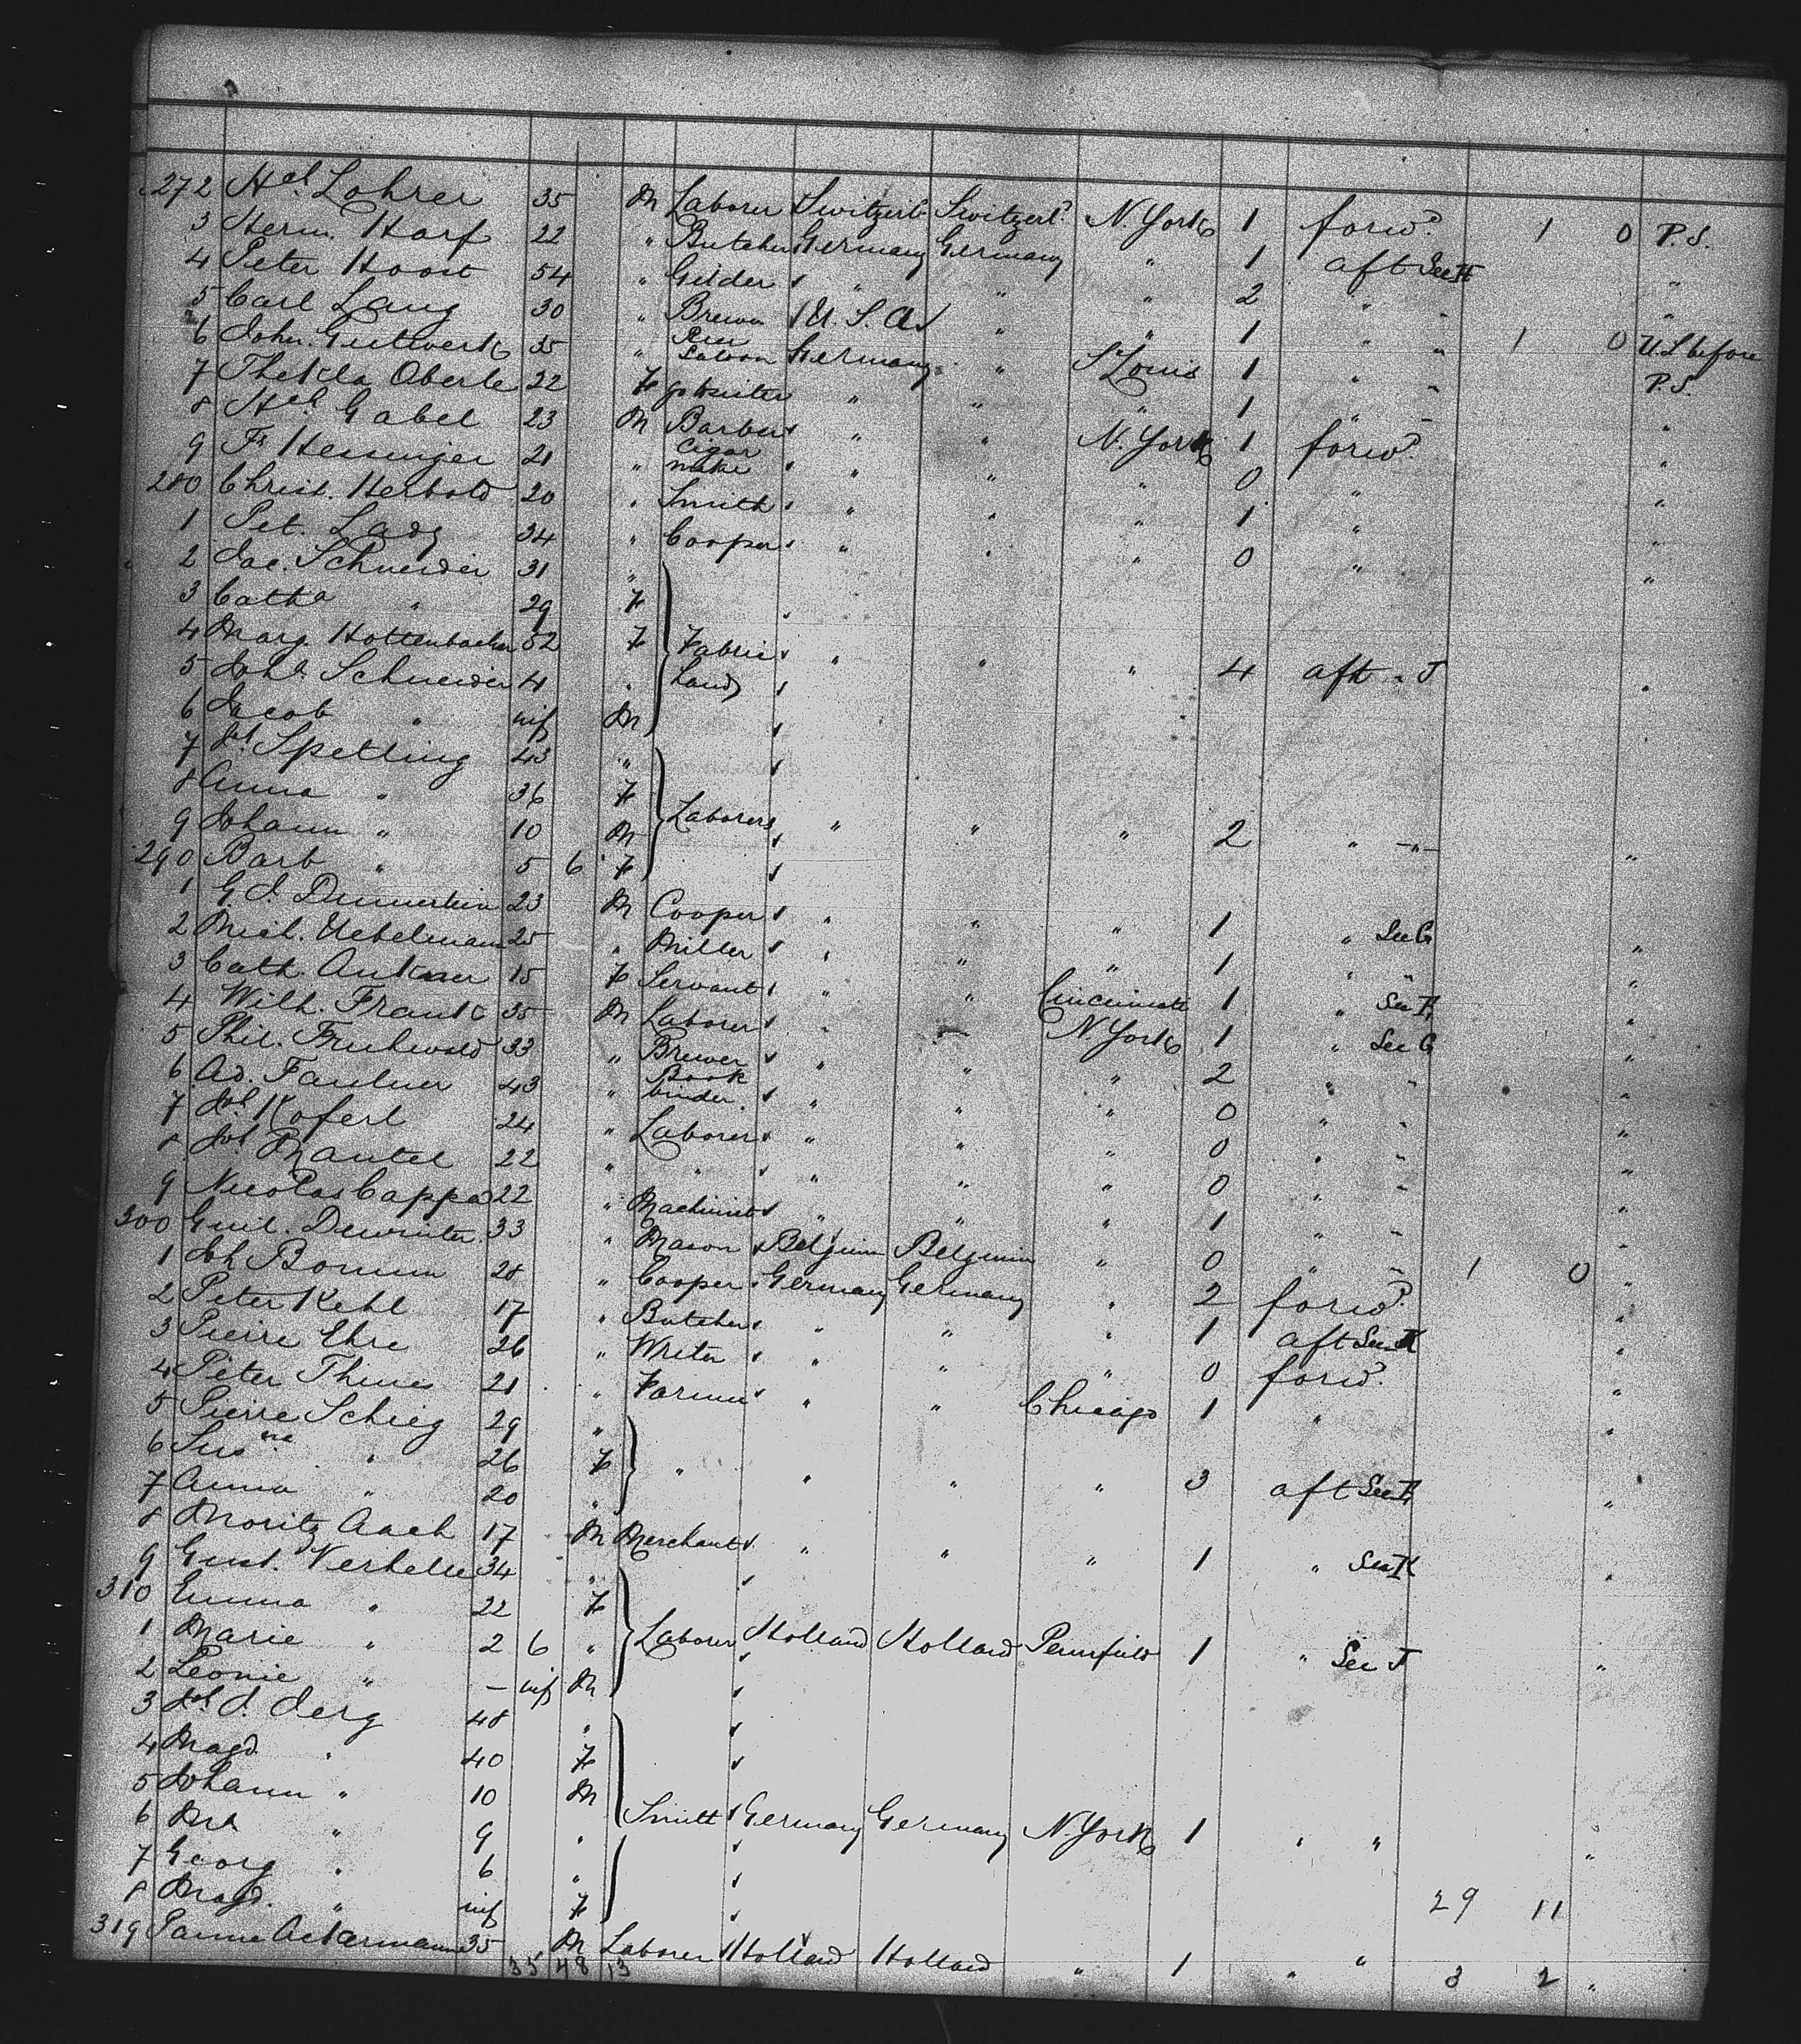 272 Hch Lohrer 35 M Laborer Switzerld Switzerld N. York 1 forwd 1 0 P.S.
3 Herm. Harf 22 " Butcher Germany Germany " 1 aft Sec H "
4 Peter Hoost 54 " Gilder " " " 2 " " "
5 Carl Lang 30 " Brewer U.S.A. " " 1 " " 1 0 U.S. before
6 John. Guttwerk 35 " Saloon Germany " S Louis 1 " " P.S.
7 Thekla Oberle 22 F " " " 1 " " "
8 Hch Gabel 23 M Barber " " N. York 1 forwd "
9 Fr Hessinger 21 " Cigar make " " " 0 " "
280 Christ. Herbold 20 " Smith " " " 1 " "
1 Pet. Lady 34 " Cooper " " " 0 " "
2 Jac. Schneider 31 "
3 Catha " 29 F
4 Marg. Hottenbacher 52 F Fabric " " " 4 aft " J
5 Joha Schneider 4 " hands "
6 Jacob " inf M
7 Joh Spelling 43 "
8 Anna " 36 F
9 Johann " 10 M Laborers " " " 2 " " "
290 Barb " 5 6 F
1 G. J. Dummerlein 23 M Cooper " " " 1 " Sec G "
2 Mich. Uebelmann 25 " Miller " " " 1 " " "
3 Cath. Ankner 15 F Servant " " Cincinnati 1 " "
4 Wilh. Frank 35 M Laborer " " N. York 1 " Sec G "
5 Phil. Fruhwald 33 " Brewer " " " 2 " " "
6 Ad. Faulner 43 " Book binder " " " 0 " " "
7 Joh Koferl 24 " Laborer " " " 0 " " "
8 Joh Mantel 22 " " " " " 0 " " "
9 Nicolas Cappa 22 " Machinist " " " 1 " " "
300 Guil. Dewinter 33 " Mason Belgium Belgium " 0 " " 1 0 "
1 Joh Bomm 28 " Cooper Germany Germany " 2 forwd "
2 Peter Kehl 17 " Butcher " " " 1 aft Sec "
3 Pierre Ehre 26 " Writer " " " 0 forwd "
4 Peter Thines 21 " Farmer " " Chicago 1 " "
5 Pierre Schieg 29 "
6 Susna " 26 F " " " " 3 aft Sec "
7 Anna " 20 "
8 Moritz Aach 17 M Merchant " " " 1 " Sec K "
9 Gust. Verhelle 34 "
310 Emma " 22 F
1 Marie " 2 6 " Laborer Holland Holland Pennfield 1 " Sec J "
2 Leonie " - inf M
3 Joh J. Jerg 48 "
4 Magd. " 40 F
5 Johann " 10 M
6 " 9 " Smith Germany Germany N. York 1 " " "
7 Georg " 6 "
8 Magd. " inf F 29 11
319 Ackermann 35 M Laborer Holland Holland " 1 " " 3 2 "
35 48 13